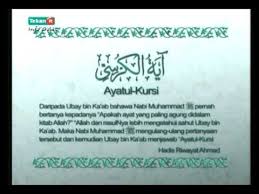 Tekan
آية الكرسي
Ayatul-Kursi
Daripada Ubay bin Ka'ab bahawa Nabi Muhammad ﷺ pernah
bertanya kepadanya "Apakah ayat yang paling agung didalam
kitab Allah?" "Allah dan rasulNya lebih mengetahui sahut Ubay bin
Ka'ab. Maka Nabi Muhammad ﷺ mengulang-ulang pertanyaan
tersebut dan kemudian Ubay bin Ka'ab menjawab 'Ayatul-Kursi
Hadis Riwayat Ahmad